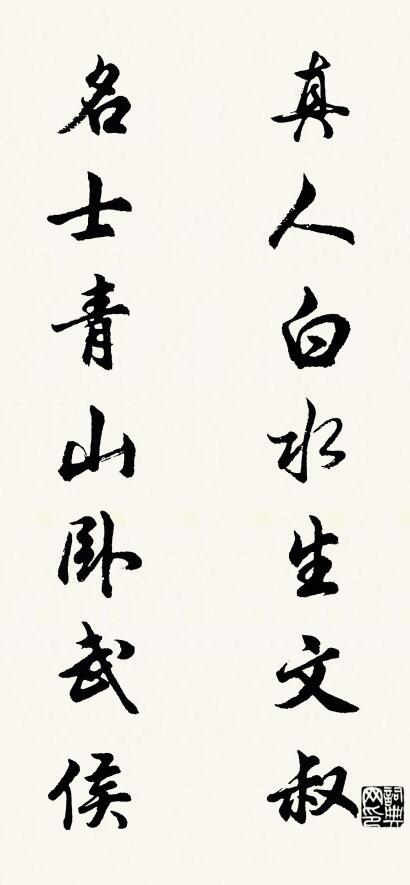 真人白水生文叔
名士青山卧武侯
詞典网印